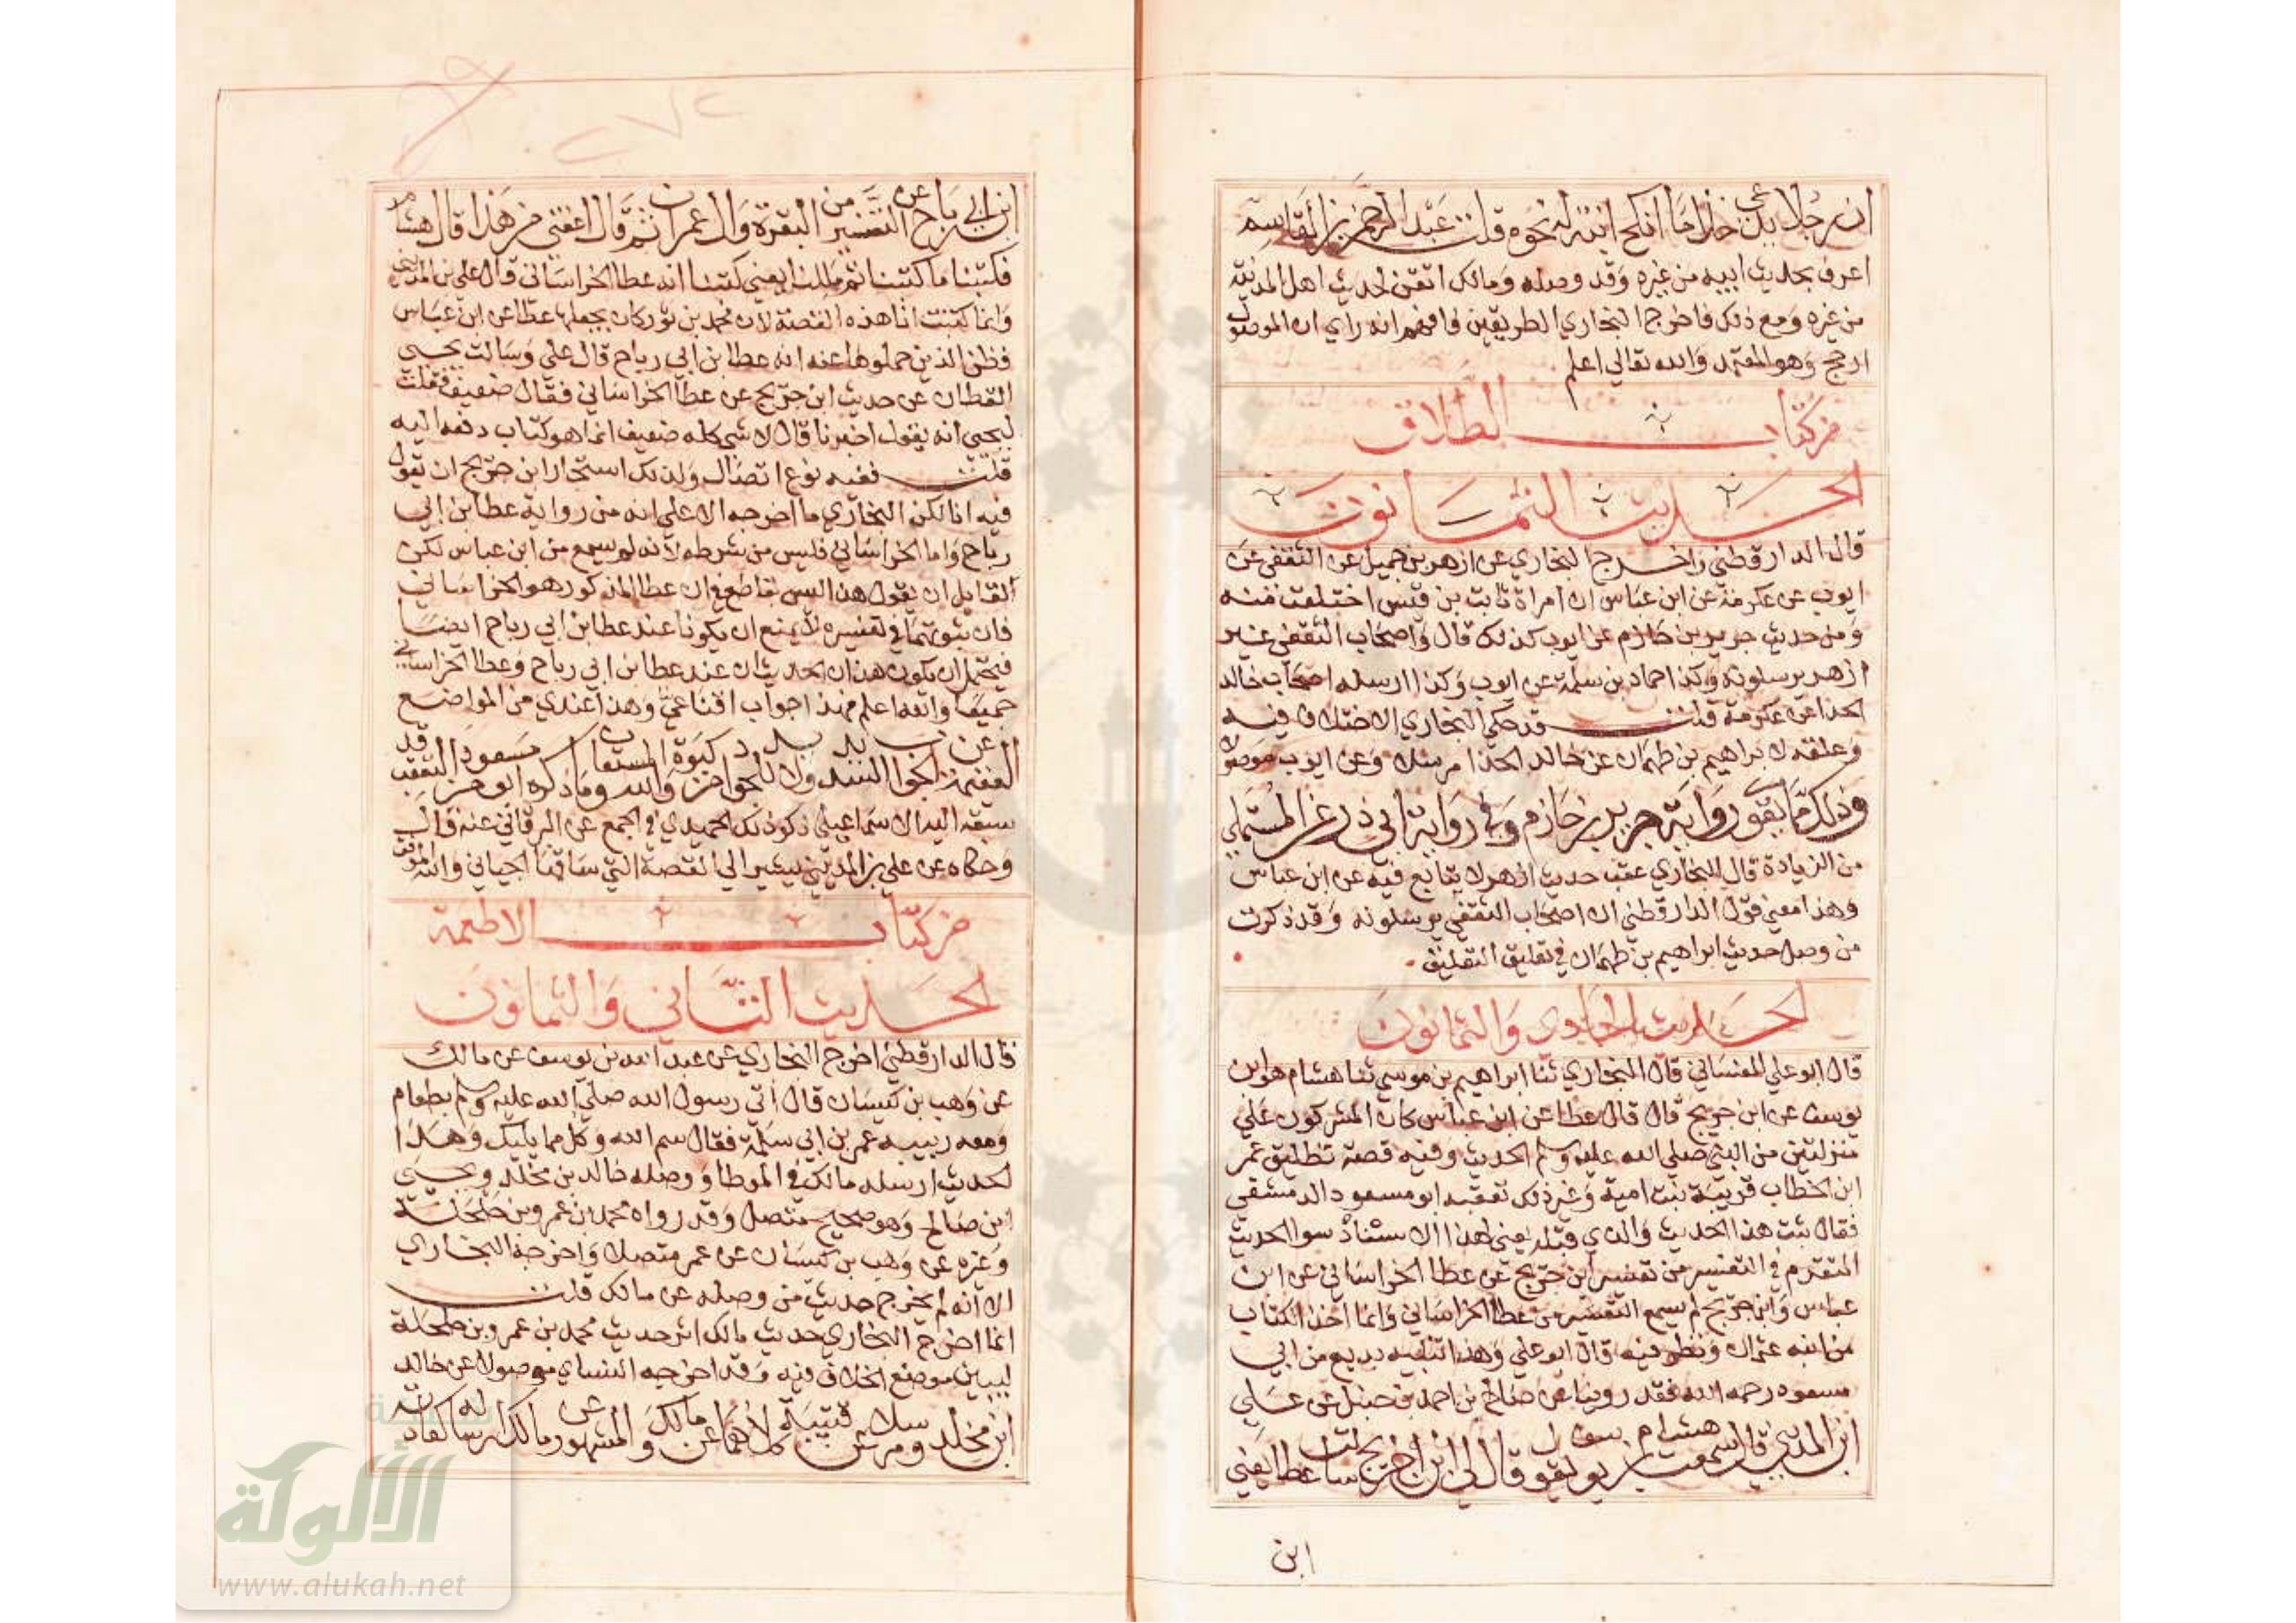 ان رجلا يدعى خذاما انكح ابنة له نحوه قلت عبد الرحمن بن القاسم
اعرف بحديث ابيه من غيره وقد وصله ومالك اتقن لحديث اهل المدينة
من غيره ومع ذلك فاخرج البخاري الطريقين فافهم انه راي ان الموصول
ارجح وهو المعتمد والله تعالي اعلم
من كتاب الطلاق
الحديث الثمانون
قال الدارقطني واخرج البخاري عن ازهر بن جميل عن الثقفي عن
ايوب عن عكرمة عن ابن عباس ان امراة ثابت بن قيس اختلعت منه
ومن حديث جرير بن حازم عن ايوب كذلك قال واصحاب الثقفي غير
ازهر يرسلونه وكذا حماد بن سلمة عن ايوب وكذا ارسله اصحاب خالد
الحذا عن عكرمة قلت قد حكي البخاري الاختلاف فيه
وعلقه لابراهيم بن طهمان عن خالد الحذا مرسلا وعن ايوب موصولا
وذلك مما يقوي رواية جرير بن حازم وفي رواية ابي ذر عن المستملي
من الزيادة قال البخاري عقب حديث ازهر لا يتابع فيه عن ابن عباس
وهذا معني قول الدارقطني ان اصحاب الثقفي يرسلونه وقد ذكرت
من وصل حديث ابراهيم بن طهمان في تغليق التعليق
الحديث الحادي والثمانون
قال ابو علي الغساني قال البخاري ثنا ابراهيم بن موسي ثنا هشام هو ابن
يوسف عن ابن جريج قال قال عطا عن ابن عباس كان المشركون علي
منزلتين من النبي صلي الله عليه وسلم الحديث وفيه قصة تطليق عمر
ابن الخطاب قريبة بنت امية وغير ذلك تعقبه ابو مسعود الدمشقي
فقال ثبت هذا الحديث والذي قبله يعني بهذا الاسناد سوا الحديث
المتقدم في التفسير من تفسير ابن جريج عن عطا الخراساني عن ابن
عباس وابن جريج لم يسمع التفسير من عطا الخراساني وانما اخذ الكتاب
من ابنه عثمان ونظر فيه قال ابو علي وهذا تنبيه بديع من ابي
مسعود رحمه الله فقد روينا عن صالح بن احمد بن حنبل عن علي
ابن المديني قال سمعت هشام بن يوسف يقول قال لي ابن جريج سالت عطا يعني
ابن
ابن ابي رباح عن التفسير من البقرة وال عمران ثم قال اعفني من هذا قال هشام
فكتبنا ما كتبنا ثم مللنا يعني كتبنا انه عطا الخراساني قال علي بن المديني
وانما كتبت انا هذه القصة لان محمد بن ثور كان يجعلها عطا عن ابن عباس
فظن الذين حملوها عنه انه عطا بن ابي رباح قال علي وسالت يحيي
القطان عن حديث ابن جريج عن عطا الخراساني فقال ضعيف فقلت
ليحيي انه يقول اخبرنا قال لا شي كله ضعيف انما هو كتاب دفعه اليه
قلت ففيه نوع اتصال ولذلك استجاز ابن جريج ان يقول
فيه انا لكن البخاري ما اخرجه الا علي انه من رواية عطا بن ابي
رباح واما الخراساني فليس من شرطه لانه لم يسمع من ابن عباس لكن
لقايل ان يقول هذا ليس بقاطع في ان عطا المذكور هو الخراساني
فان ثبوتهما في تفسيره لا يمنع ان يكونا عند عطا بن ابي رباح ايضا
فيحتمل ان يكون هذان الحديثان عند عطا بن ابي رباح وعطا الخراساني
جميعا والله اعلم فهذا جواب اقناعي وهذا عندي من المواضع
العقيمة عن الجواب السديد ولا بد للجواد من كبوة والله المستعان وما ذكره ابو مسعود من التعقب قد
سبقه اليه الاسماعيلي ذكر ذلك الحميدي في الجمع عن البرقاني عنه قال
وحكاه عن علي بن المديني يشير الي القصة التي ساقها الجياني والله الموفق
من كتاب الاطعمة
الحديث الثاني والثمانون
قال الدارقطني اخرج البخاري عن عبد الله بن يوسف عن مالك
عن وهب بن كيسان قال اتي رسول الله صلي الله عليه وسلم بطعام
ومعه ربيبه عمر بن ابي سلمة فقال سم الله وكل مما يليك وهذا
الحديث ارسله مالك في الموطا ووصله خالد بن مخلد ويحيي
ابن صالح وهو صحيح متصل وقد رواه محمد بن عمرو بن حلحلة
وغيره عن وهب بن كيسان عن عمر متصلا واخرجه البخاري
الا انه لم يخرج حديث من وصله عن مالك قلت
انما اخرج البخاري حديث مالك اثر حديث محمد بن عمرو بن حلحلة
ليبين موضع الخلاف فيه وقد اخرجه النساي موصولا عن خالد
ابن مخلد ومرسلا عن قتيبة كلاهما عن مالك والمشهور عن مالك ارساله كعادته
الألوكة
www.alukah.net